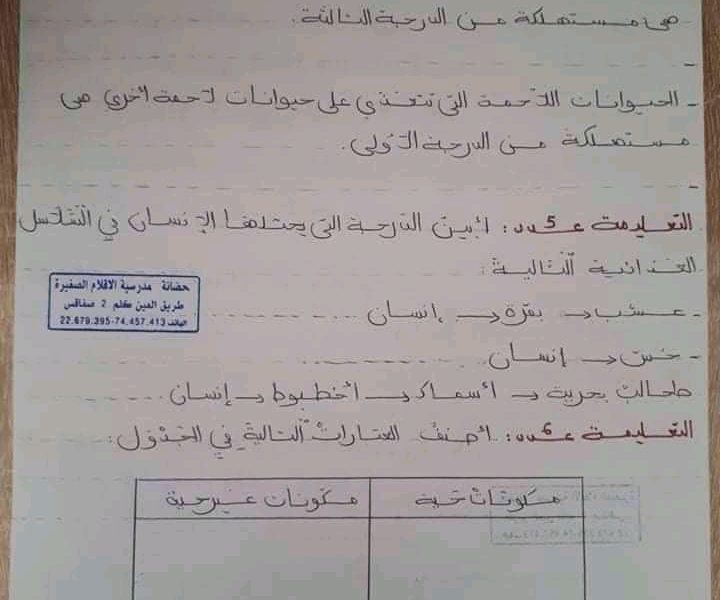 هي مستهلكة من الدرجة الثالثة.
- الحيوانات اللاحمة التي تتغذي على حيوانات لاحمة أخرى هي
مستهلكة من الدرجة الأولى.
التعليمة عدد 5: أبين الدرجة التي يحتلها الإنسان في السلاسل
الغذائية التالية:
حضانة مدرسية الاقلام الصغيرة
طريق العين كلم 2 صفاقس
الهاتف 22.679.395-74.457.413
- عشب ← بقرة ← إنسان ..............
- خس ← إنسان ..............
طحالب بحرية ← أسماك ← أخطبوط ← إنسان ........
التعليمة عدد 6: أصنف العبارات التالية في الجدول:
مكونات حية مكونات غير حية